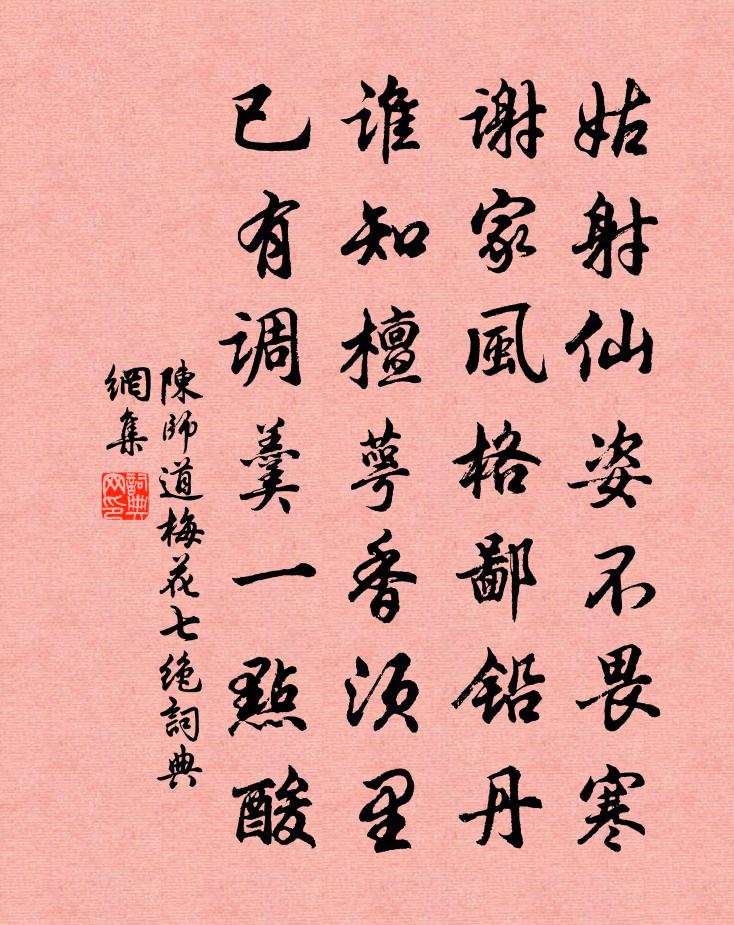 姑射仙姿不畏寒
谢家風格鄙铅丹
谁知檀萼香须里
已有调羹一點酸
陳師道梅花七绝詞典
網集
詞典网印